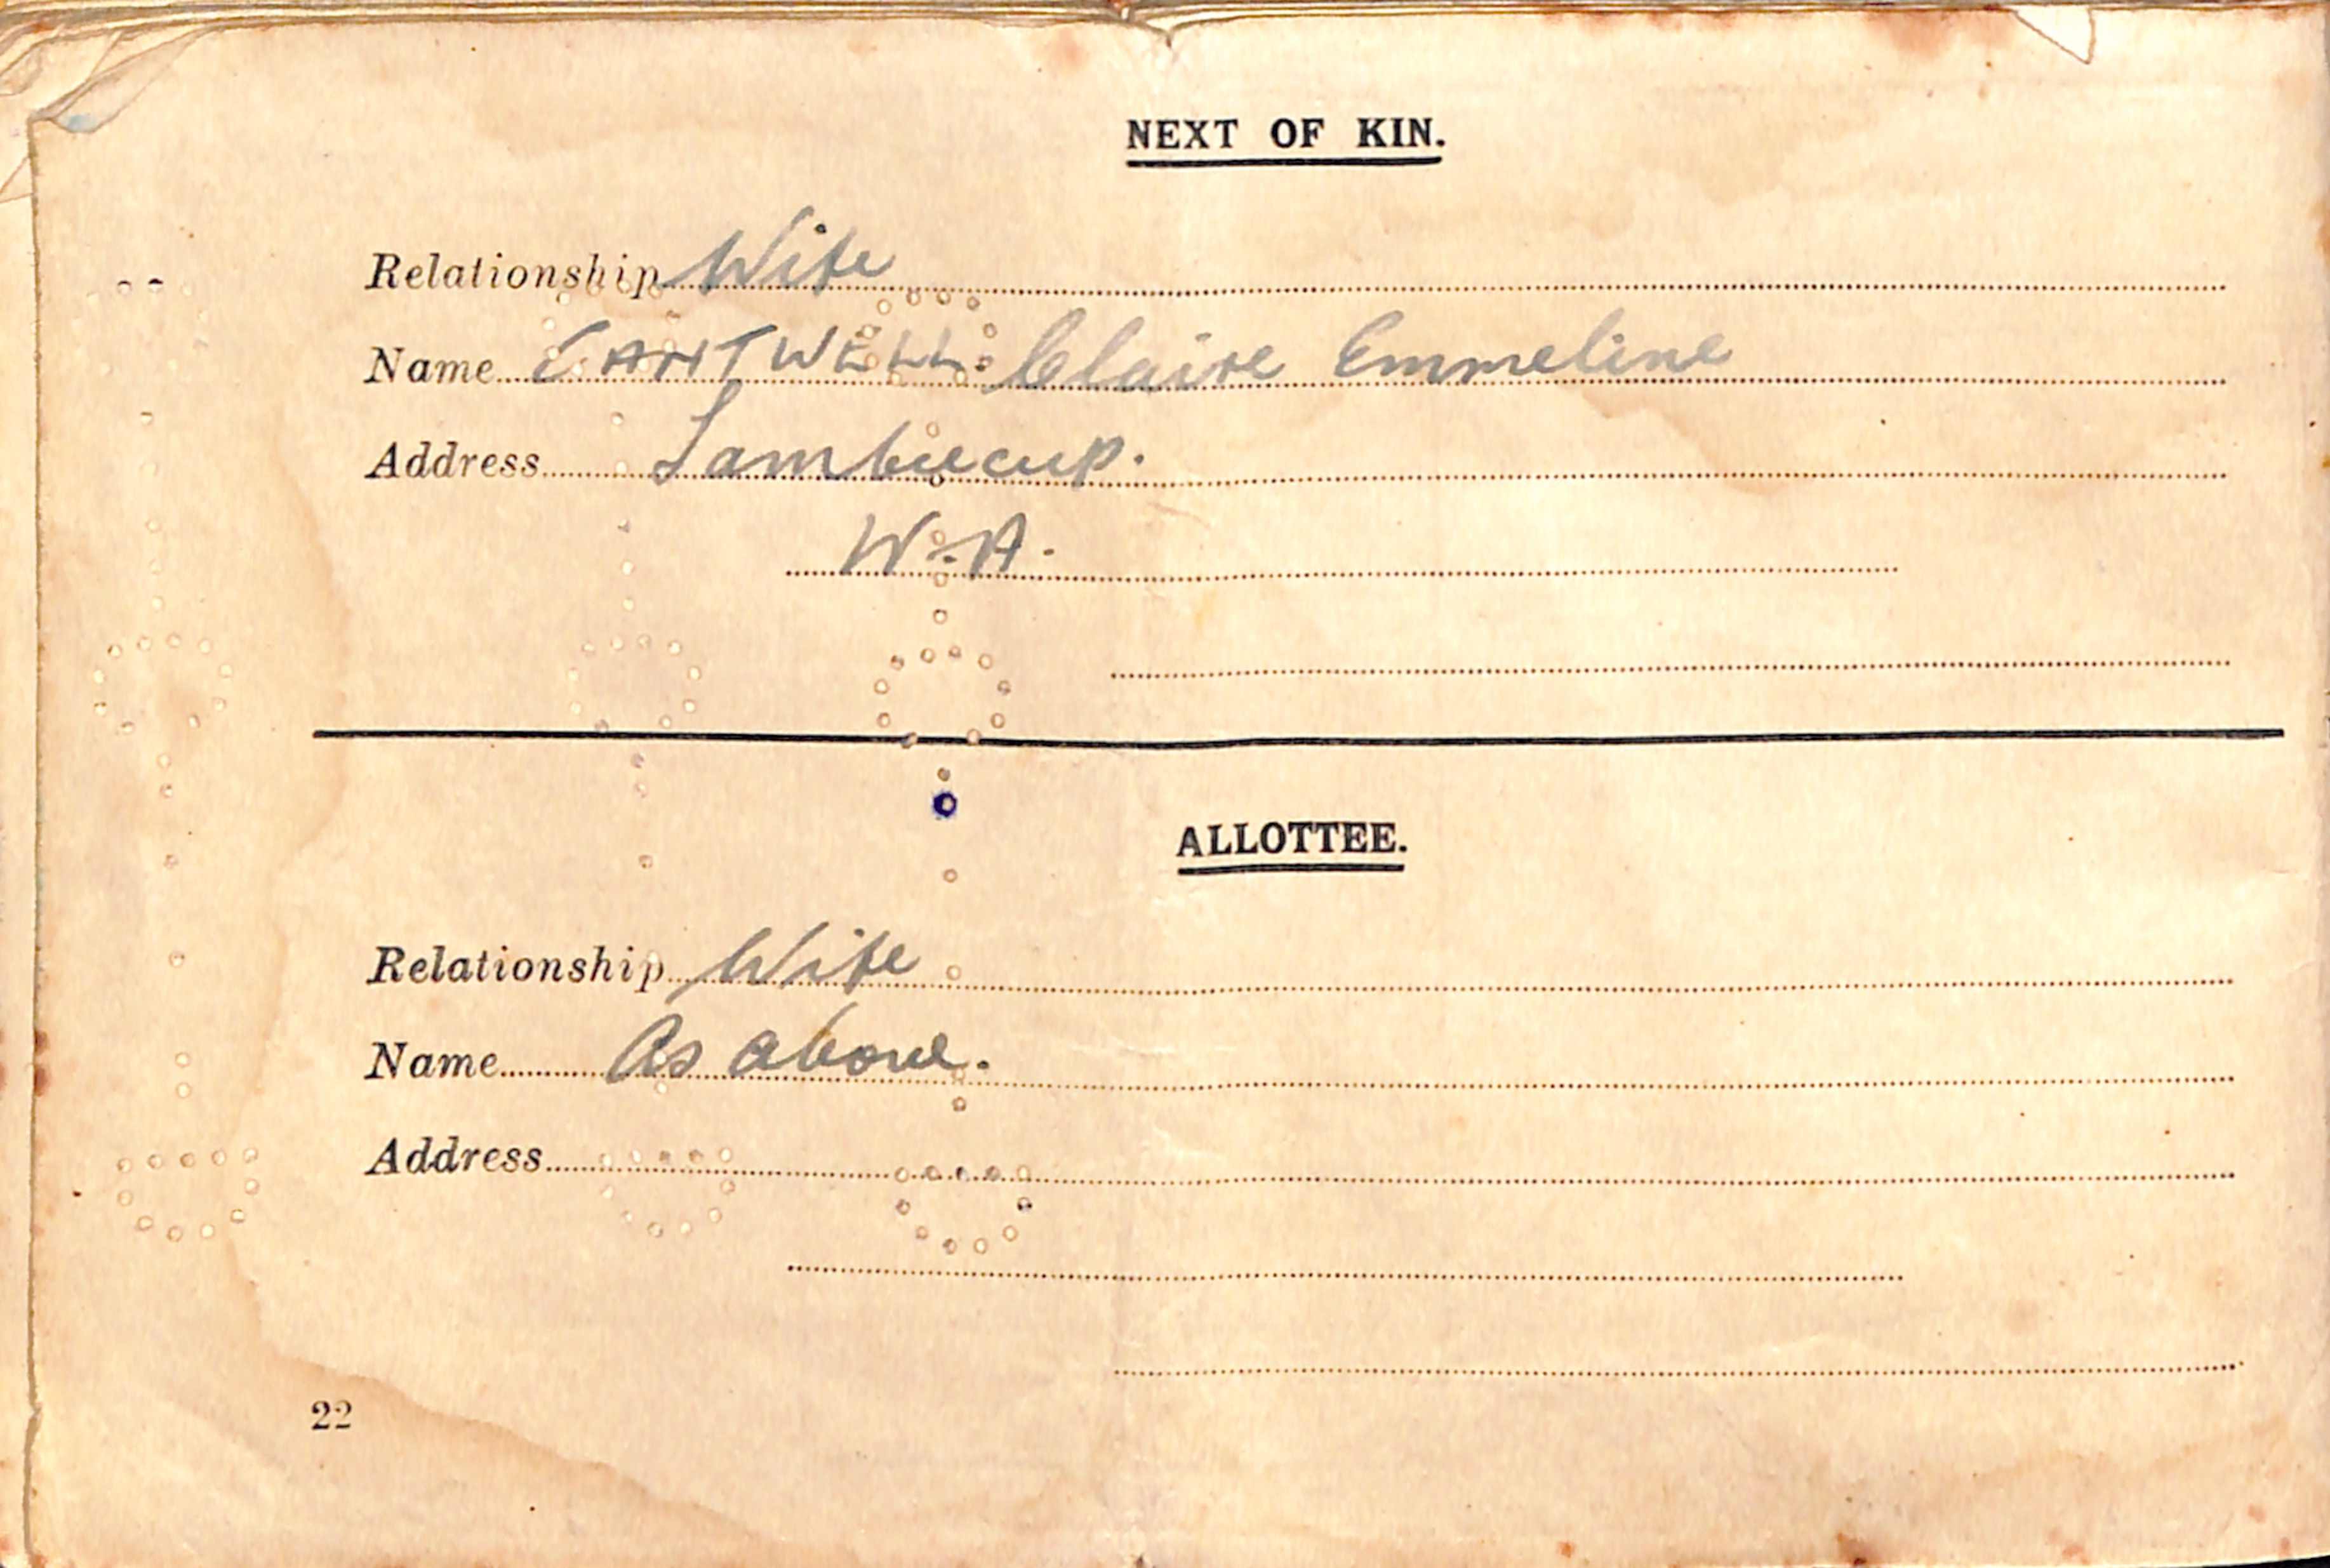 NEXT OF KIN.
Relationship Wife
Name CANTWELL. Claire Emmeline
Address Tambuecup.
W.A.
ALLOTTEE.
Relationship Wife
Name As above.
Address
22